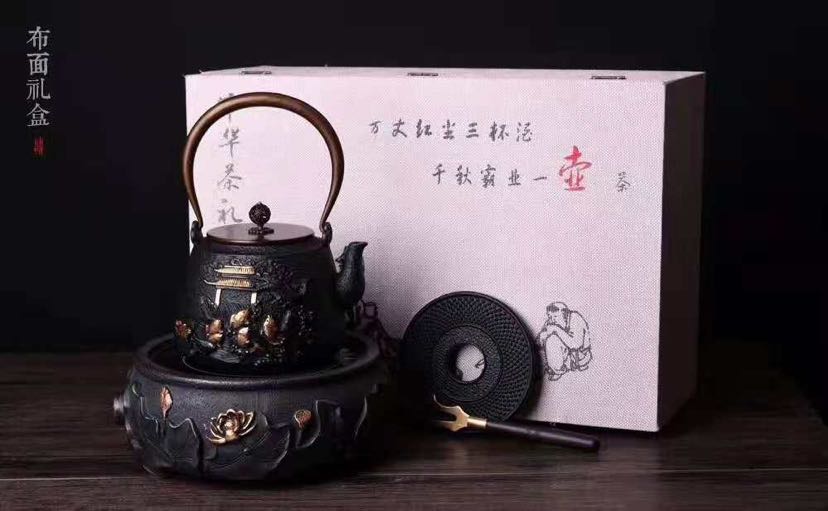 布面礼盒
中华茶礼
万丈红尘三杯酒
千秋霸业一壶茶